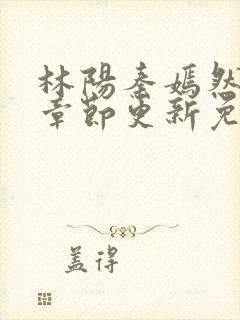 林陽秦嫣然
章節更新免
蓋得